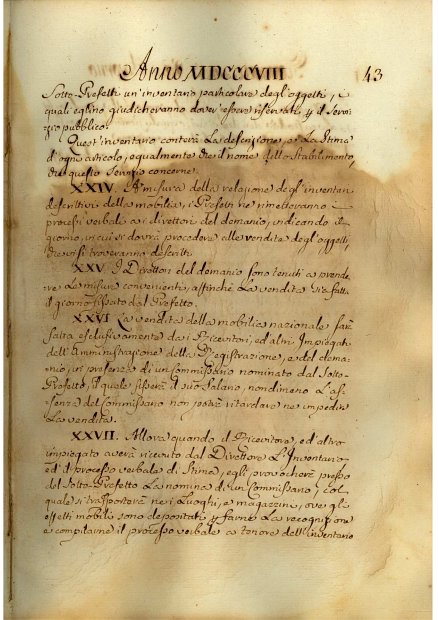 Anno MDCCCVIII 43
Sotto-Prefetti un'inventario particolare degl'oggetti, i
quali eglino giudicheranno dover essere riservati p il Servi-
zio pubblico.
Quest'inventario conterà La descrizione, e La Stima
d'ogni articolo, egualmente che il nome dello Stabilimento,
che questo Servizio concerne.
XXIV. A misura della relazione degl'inventari
descrittivi della mobilia, i Prefetti ne rimetteranno i
processi verbali a' direttori del demanio, indicando il
giorno, in cui si dovrà procedere alle vendite degl'oggetti,
che vi si troveranno descritti.
XXV. I Direttori del demanio sono tenuti a prende-
re Le misure convenienti, affinché La vendita sia fatta
il giorno fissato dal Prefetto.
XXVI. La vendita della mobilia nazionale sarà
fatta esclusivamente da i Ricevitori, ed altri Impiegati
dell'Amministrazione della Registrazione, e del dema-
nio, in presenza di un Commissario nominato dal Sotto-
Prefetto, il quale fisserà il suo Salario, nondimeno L'as-
senza del Commissario non potrà ritardare ne impedire
La vendita.
XXVII. Allora quando il Ricevitore, ed altro
impiegato averà ricevuto dal Direttore L'Inventario
ed il processo verbale di Stima, egli provocherà presso
del Sotto-Prefetto La nomina di un Commissario, col
quale si trasporterà nei Luoghi, e magazzini, ove gli
effetti mobili sono depositati p farne La recognizione
e compilarne il processo verbale a tenore dell'inventario